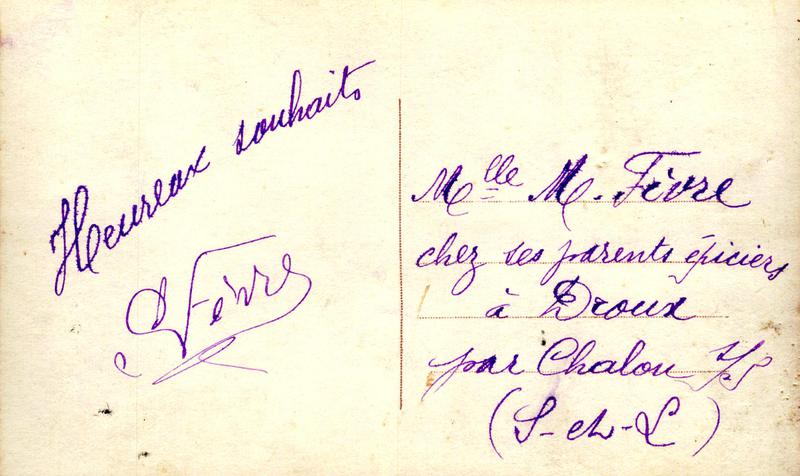 Heureux souhaits
Fèvre
Mlle M. Fèvre
chez ses parents épiciers
à Droux
par Chalon s/s
(S-et-L)